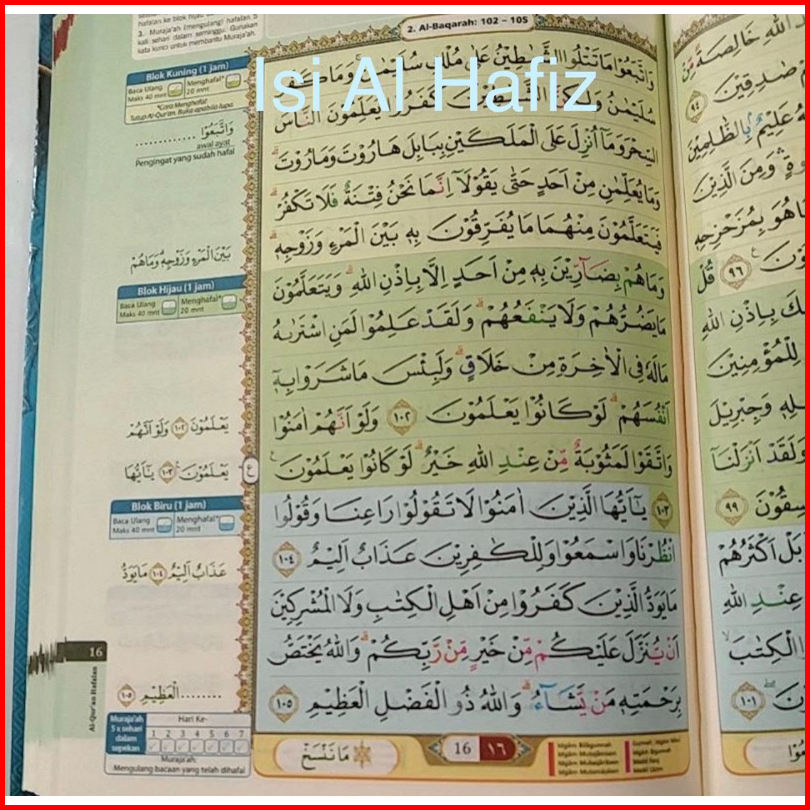 hafalan ke blok hijau
3. Muraja'ah (mengulang) hafalan 5
kali sehari dalam seminggu. Gunakan
kata kunci untuk membantu Muraja'ah.
Blok Kuning (1 jam)
Baca Ulang
Maks 40 mnt
Menghafal*
20 mnt
*Cara Menghafal:
Tutup Al-Qur'an. Buka apabila lupa.
وَاتَّبَعُوْا ............
awal ayat
Pengingat yang sudah hafal
بَيْنَ الْمَرْءِ وَزَوْجِهٖ وَمَاهُمْ
Blok Hijau (1 jam)
Baca Ulang
Maks 40 mnt
Menghafal*
20 mnt
يَعْلَمُوْنَ ١٠٢ وَلَوْ اَنَّهُمْ
يَعْلَمُوْنَ ١٠٣ يٰٓاَيُّهَا
Blok Biru (1 jam)
Baca Ulang
Maks 40 mnt
Menghafal*
20 mnt
عَذَابٌ اَلِيْمٌ ١٠٤ مَايَوَدُّ
16
Al-Qur'an Hafalan
........الْعَظِيْمِ ١٠٥
Muraja'ah
5 x sehari
dalam
sepekan
Hari Ke-
1 2 3 4 5 6 7
Muraja'ah:
Mengulang bacaan yang telah dihafal
2. Al-Baqarah: 102 - 105
Isi Al Hafiz
وَاتَّبَعُوْا مَا تَتْلُوا الشَّيٰطِيْنُ عَلٰى مُلْكِ سُلَيْمٰنَ وَمَا كَفَرَ
سُلَيْمٰنُ وَلٰكِنَّ الشَّيٰطِيْنَ كَفَرُوْا يُعَلِّمُوْنَ النَّاسَ
السِّحْرَ وَمَآ اُنْزِلَ عَلَى الْمَلَكَيْنِ بِبَابِلَ هَارُوْتَ وَمَارُوْتَ
وَمَا يُعَلِّمٰنِ مِنْ اَحَدٍ حَتّٰى يَقُوْلَآ اِنَّمَا نَحْنُ فِتْنَةٌ فَلَا تَكْفُرْ
فَيَتَعَلَّمُوْنَ مِنْهُمَا مَا يُفَرِّقُوْنَ بِهٖ بَيْنَ الْمَرْءِ وَزَوْجِهٖ
وَمَا هُمْ بِضَاۤرِّيْنَ بِهٖ مِنْ اَحَدٍ اِلَّا بِاِذْنِ اللّٰهِ وَيَتَعَلَّمُوْنَ
مَا يَضُرُّهُمْ وَلَا يَنْفَعُهُمْ وَلَقَدْ عَلِمُوْا لَمَنِ اشْتَرٰىهُ
مَا لَهٗ فِى الْاٰخِرَةِ مِنْ خَلَاقٍ وَلَبِئْسَ مَا شَرَوْا بِهٖٓ
اَنْفُسَهُمْ لَوْ كَانُوْا يَعْلَمُوْنَ ١٠٢ وَلَوْ اَنَّهُمْ اٰمَنُوْا
وَاتَّقَوْا لَمَثُوْبَةٌ مِّنْ عِنْدِ اللّٰهِ خَيْرٌ لَوْ كَانُوْا يَعْلَمُوْنَ
١٠٣ يٰٓاَيُّهَا الَّذِيْنَ اٰمَنُوْا لَا تَقُوْلُوْا رَاعِنَا وَقُوْلُوا
انْظُرْنَا وَاسْمَعُوْا وَلِلْكٰفِرِيْنَ عَذَابٌ اَلِيْمٌ ١٠٤
مَا يَوَدُّ الَّذِيْنَ كَفَرُوْا مِنْ اَهْلِ الْكِتٰبِ وَلَا الْمُشْرِكِيْنَ
اَنْ يُّنَزَّلَ عَلَيْكُمْ مِّنْ خَيْرٍ مِّنْ رَّبِّكُمْ وَاللّٰهُ يَخْتَصُّ
بِرَحْمَتِهٖ مَنْ يَّشَاۤءُ وَاللّٰهُ ذُو الْفَضْلِ الْعَظِيْمِ ١٠٥
مَا نَنْسَخْ
16 ١٦
اللّٰهِ خَالِصَةً مِّنْ
صٰدِقِيْنَ
عَلِيْمٌ بِالظّٰلِمِيْنَ
وَمِنَ الَّذِيْنَ
مَا هُوَ بِمُزَحْزِحِهٖ
٩٦ قُلْ
بِاِذْنِ اللّٰهِ
لِلْمُؤْمِنِيْنَ
وَجِبْرِيْلَ
وَلَقَدْ اَنْزَلْنَآ
٩٩
بَلْ اَكْثَرُهُمْ
عِنْدِ اللّٰهِ
الْكِتٰبَ
١٠١